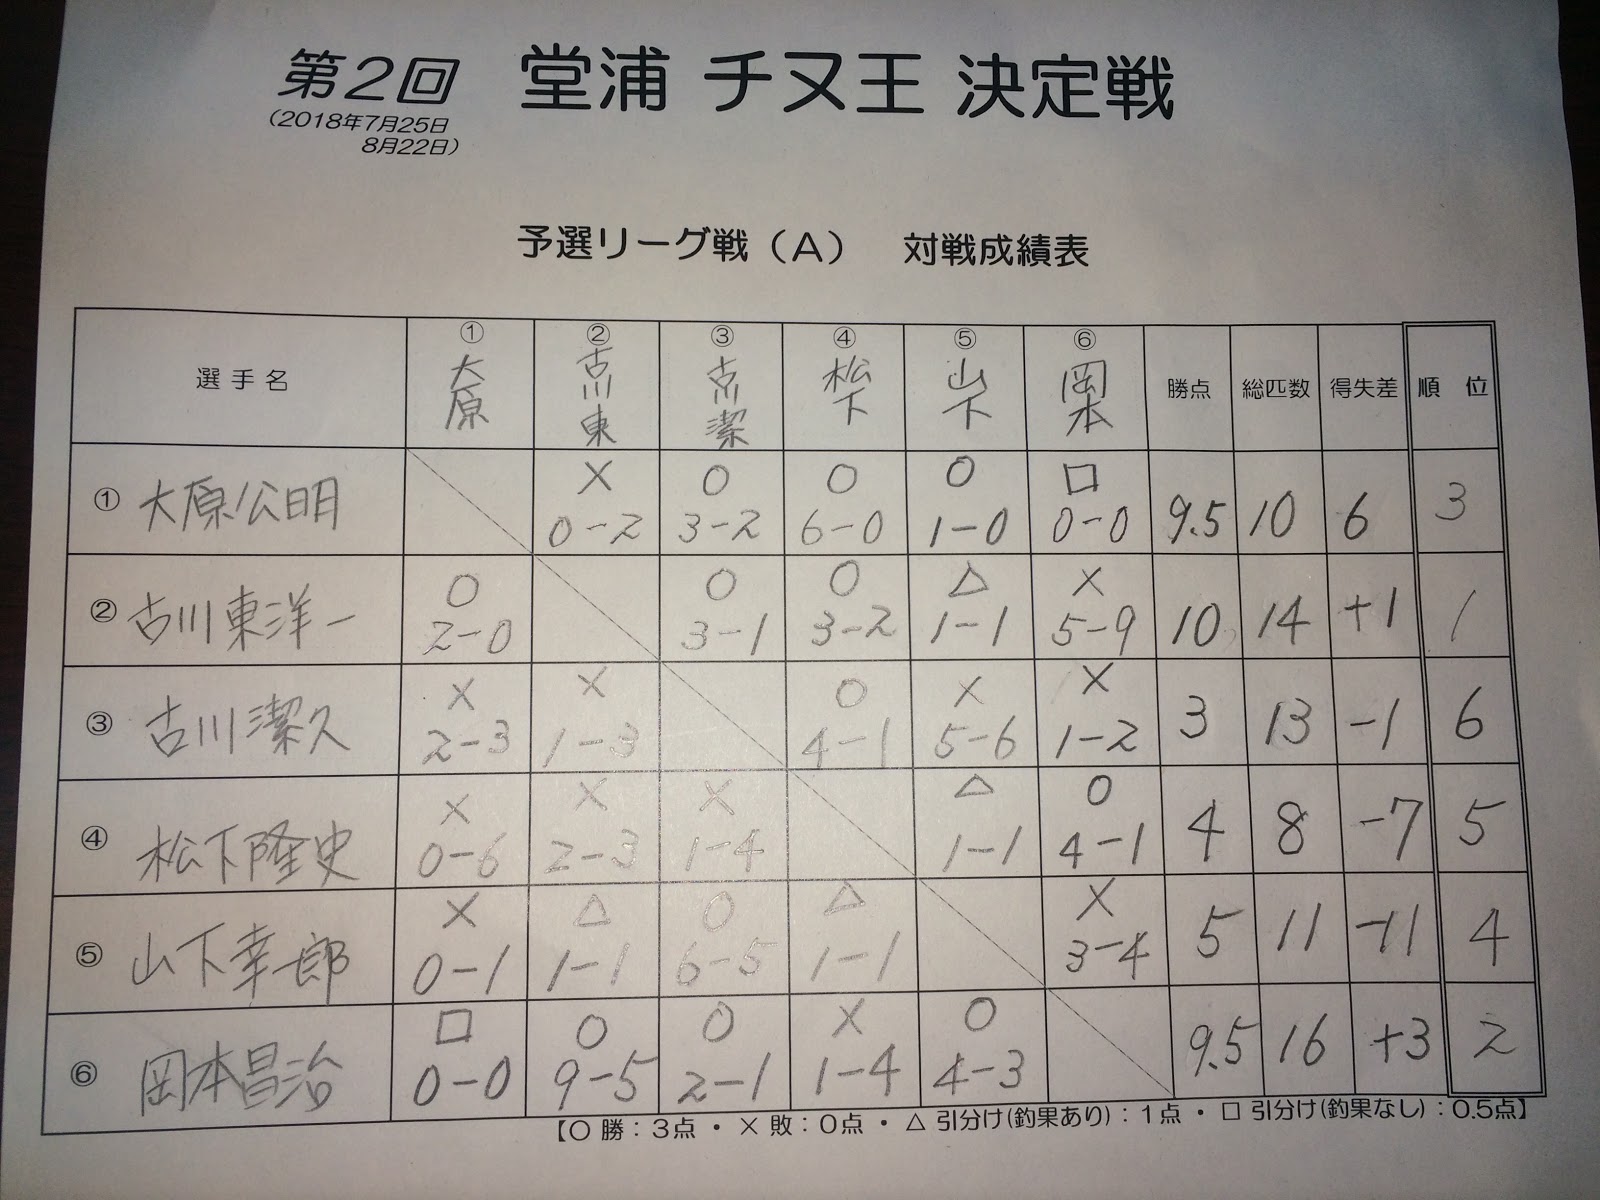 第2回 堂浦 チヌ王 決定戦
(2018年7月25日
8月22日)
予選リーグ戦(A) 対戦成績表
選手名 ①大原 ②古川東 ③古川潔 ④松下 ⑤山下 ⑥岡本 勝点 総匹数 得失差 順位
× ○ ○ ○ □
① 大原公明 0-2 3-2 6-0 1-0 0-0 9.5 10 6 3
○ ○ ○ △ ×
② 古川東洋一 2-0 3-1 3-2 1-1 5-9 10 14 +1 1
× × ○ × ×
③ 古川潔久 2-3 1-3 4-1 5-6 1-2 3 13 -1 6
× × × △ ○
④ 松下隆史 0-6 2-3 1-4 1-1 4-1 4 8 -7 5
× △ ○ △ ×
⑤ 山下幸一郎 0-1 1-1 6-5 1-1 3-4 5 11 -11 4
□ ○ ○ × ○
⑥ 岡本昌治 0-0 9-5 2-1 1-4 4-3 9.5 16 +3 2
【○ 勝:3点 ・ × 敗:0点 ・ △ 引分け(釣果あり):1点 ・ □ 引分け(釣果なし):0.5点】